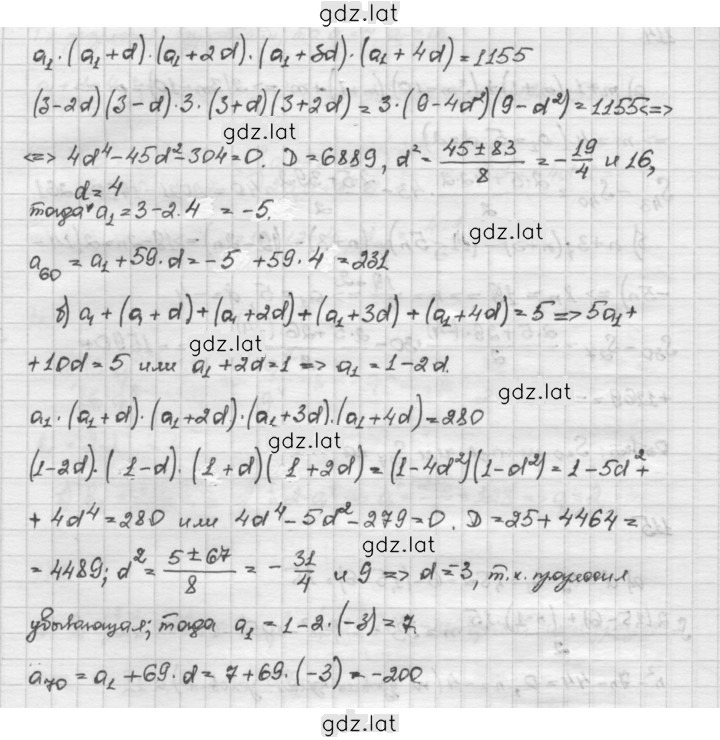 gdz.lat
a₁·(a₁+d)·(a₁+2d)·(a₁+3d)·(a₁+4d)=1155
(3-2d)(3-d)·3·(3+d)(3+2d)=3·(9-4d²)(9-d²)=1155<=>
gdz.lat
<=> 4d⁴-45d²-304=0. D=6889, d²=(45±83)/8=-19/4 и 16,
d=4
тогда a₁=3-2·4=-5.
gdz.lat
a₆₀=a₁+59·d=-5+59·4=231
б) a₁+(a₁+d)+(a₁+2d)+(a₁+3d)+(a₁+4d)=5=>5a₁+
gdz.lat
+10d=5 или a₁+2d=1=>a₁=1-2d.
gdz.lat
a₁·(a₁+d)·(a₁+2d)·(a₁+3d)·(a₁+4d)=280
gdz.lat
(1-2d)·(1-d)·(1+d)(1+2d)=(1-4d²)(1-d²)=1-5d²+
+4d⁴=280 или 4d⁴-5d²-279=0. D=25+4464=
gdz.lat
=4489; d²=(5±67)/8=-31/4 и 9=>d=-3, т.к. прогрессия
убывающая; тогда a₁=1-2·(-3)=7.
a₇₀=a₁+69·d=7+69·(-3)=-200
gdz.lat